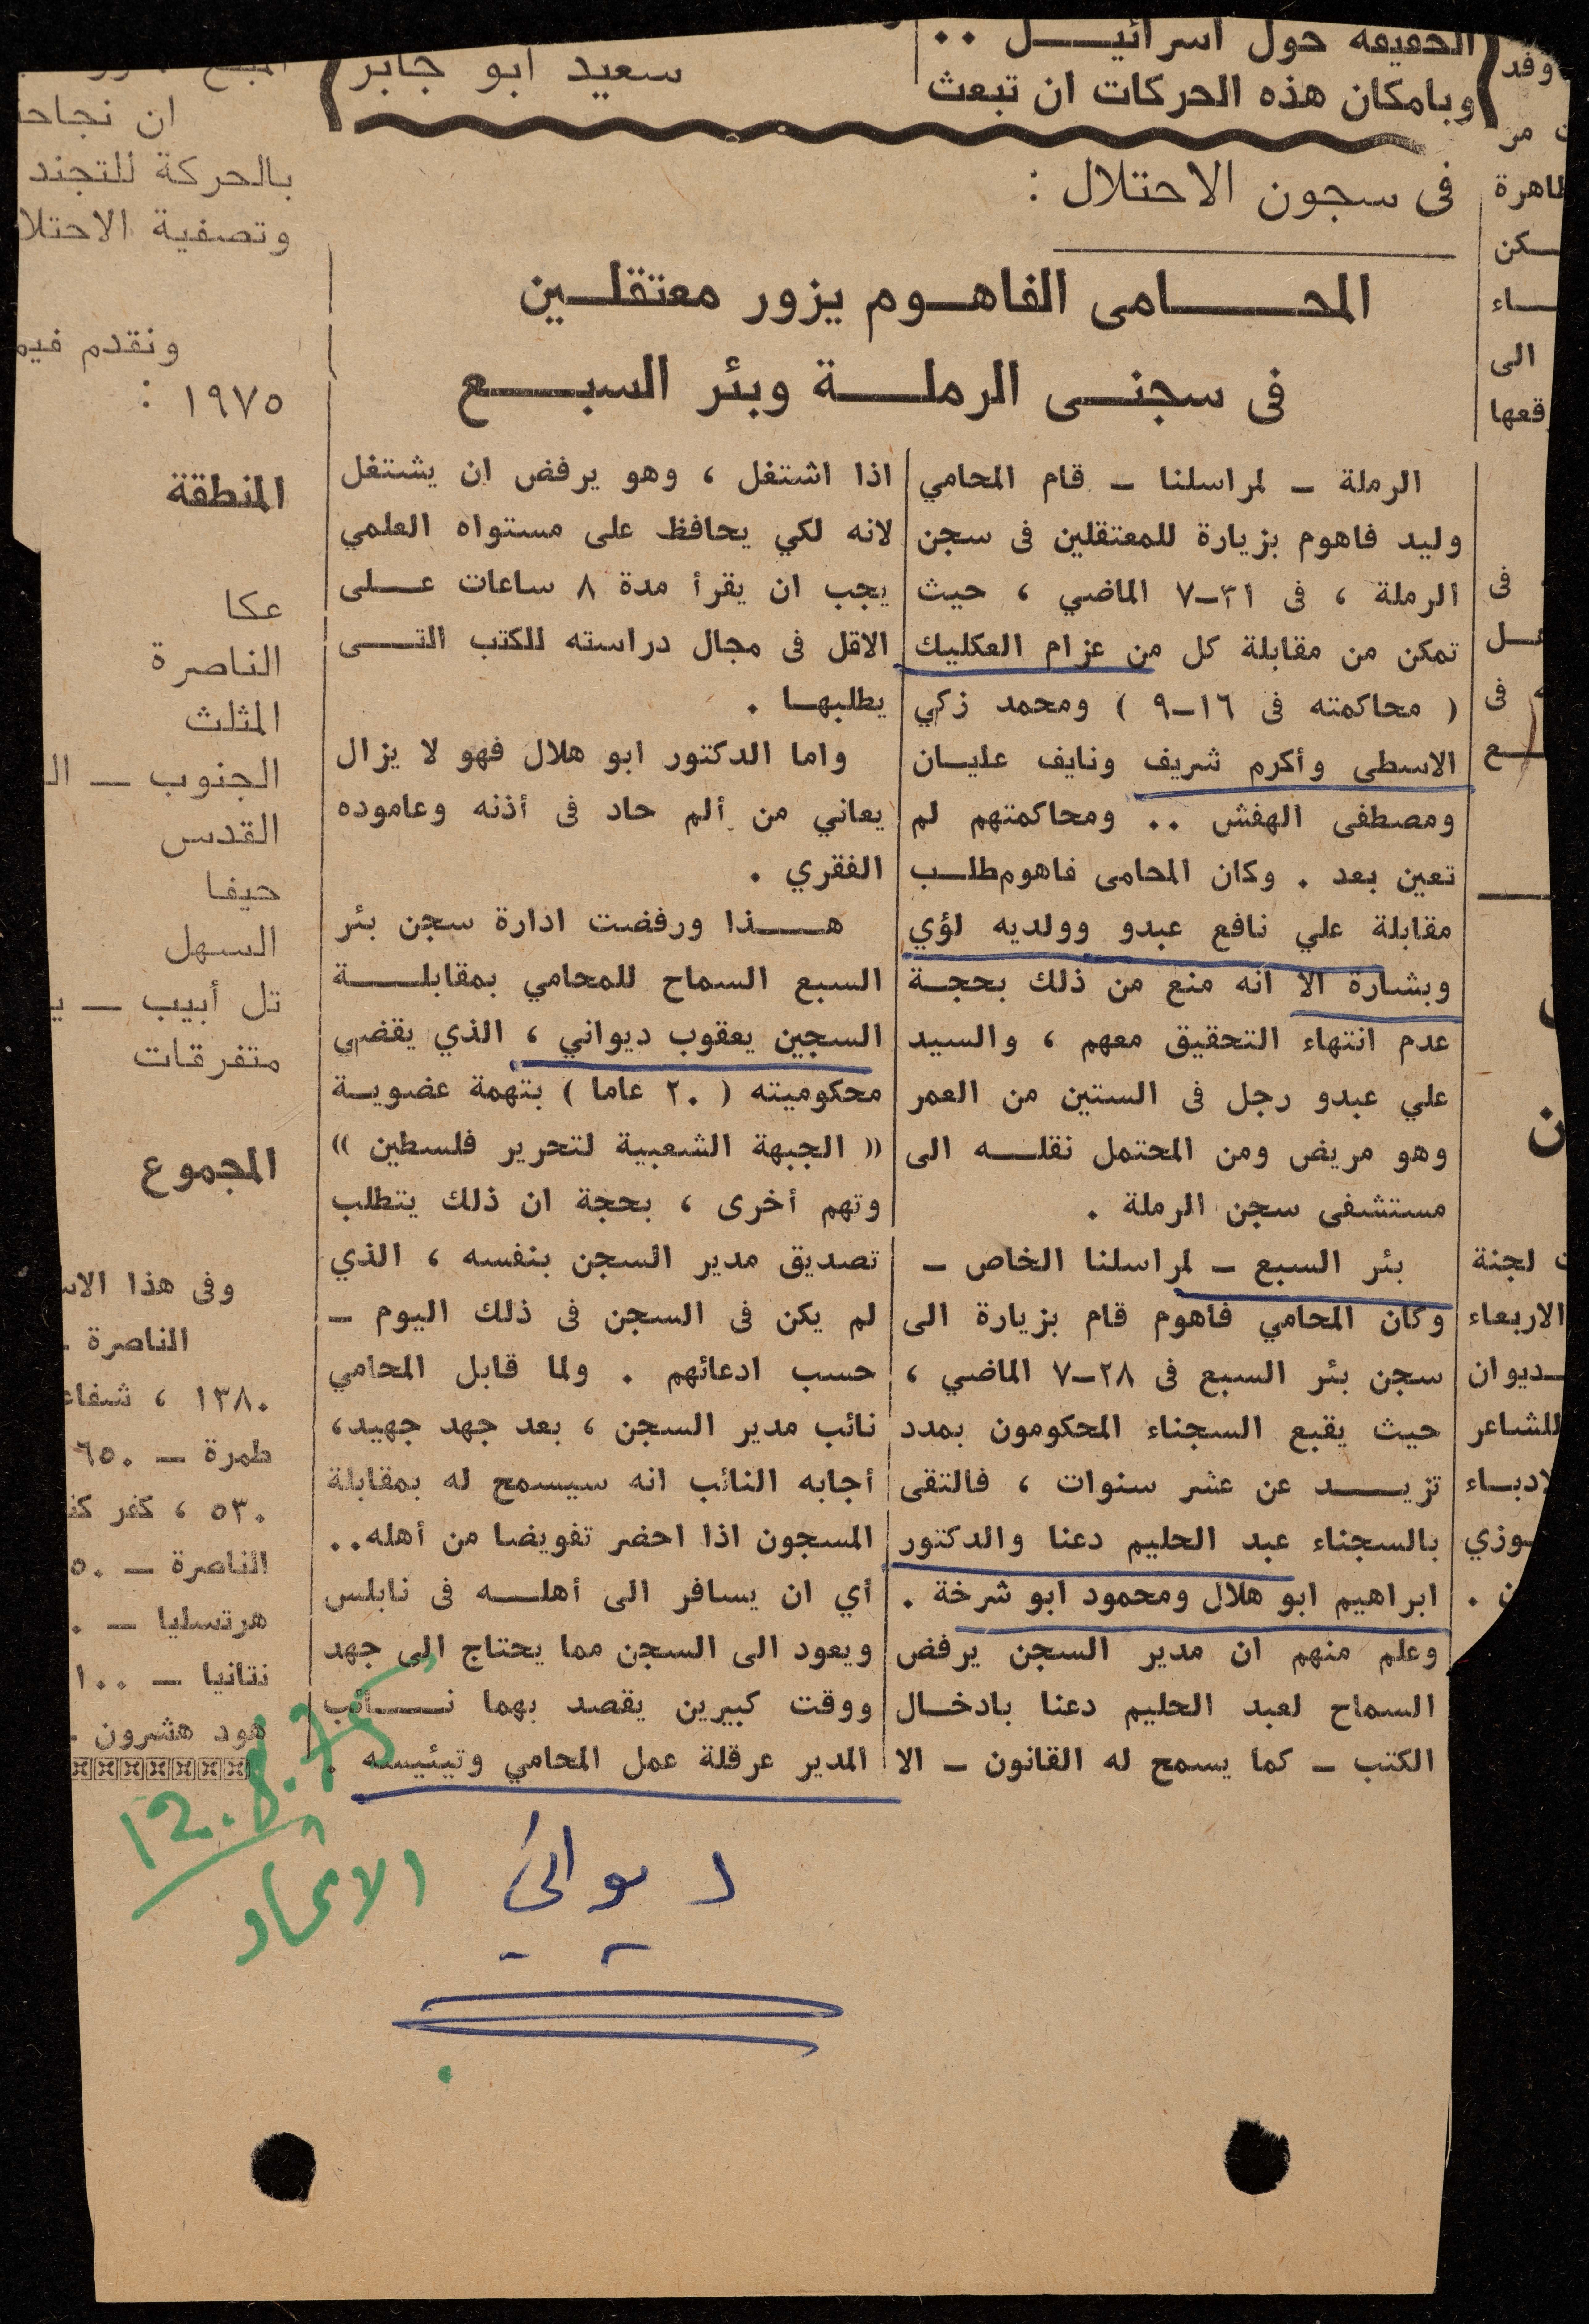 الحقيقة حول اسرائيل ..
وبامكان هذه الحركات ان تبعث
سعيد ابو جابر
فى سجون الاحتلال :
المحامى الفاهوم يزور معتقلين
فى سجنى الرملة وبئر السبع
الرملة - لمراسلنا - قام المحامي
وليد فاهوم بزيارة للمعتقلين فى سجن
الرملة ، فى ٣١-٧ الماضي ، حيث
تمكن من مقابلة كل من عزام العكليك
( محاكمته فى ١٦-٩ ) ومحمد زكي
الاسطى وأكرم شريف ونايف عليان
ومصطفى الهفش .. ومحاكمتهم لم
تعين بعد . وكان المحامى فاهوم طلب
مقابلة علي نافع عبدو وولديه لؤي
وبشارة الا انه منع من ذلك بحجة
عدم انتهاء التحقيق معهم ، والسيد
علي عبدو رجل فى الستين من العمر
وهو مريض ومن المحتمل نقله الى
مستشفى سجن الرملة .
بئر السبع - لمراسلنا الخاص -
وكان المحامي فاهوم قام بزيارة الى
سجن بئر السبع فى ٢٨-٧ الماضي ،
حيث يقبع السجناء المحكومون بمدد
تزيد عن عشر سنوات ، فالتقى
بالسجناء عبد الحليم دعنا والدكتور
ابراهيم ابو هلال ومحمود ابو شرخة .
وعلم منهم ان مدير السجن يرفض
السماح لعبد الحليم دعنا بادخال
الكتب - كما يسمح له القانون - الا
اذا اشتغل ، وهو يرفض ان يشتغل
لانه لكي يحافظ على مستواه العلمي
يجب ان يقرأ مدة ٨ ساعات على
الاقل فى مجال دراسته للكتب التى
يطلبها .
واما الدكتور ابو هلال فهو لا يزال
يعاني من ألم حاد فى أذنه وعاموده
الفقري .
هذا ورفضت ادارة سجن بئر
السبع السماح للمحامي بمقابلة
السجين يعقوب ديواني ، الذي يقضي
محكوميته ( ٢٠ عاما ) بتهمة عضوية
(( الجبهة الشعبية لتحرير فلسطين ))
وتهم أخرى ، بحجة ان ذلك يتطلب
تصديق مدير السجن بنفسه ، الذي
لم يكن فى السجن فى ذلك اليوم -
حسب ادعائهم . ولما قابل المحامي
نائب مدير السجن ، بعد جهد جهيد،
أجابه النائب انه سيسمح له بمقابلة
المسجون اذا احضر تفويضا من أهله..
أي ان يسافر الى أهله فى نابلس
ويعود الى السجن مما يحتاج الى جهد
ووقت كبيرين يقصد بهما نائب
المدير عرقلة عمل المحامي وتيئيسه .
ان نجاح
بالحركة للتجند
وتصفية الاحتلا
ونقدم فيم
١٩٧٥ :
المنطقة
عكا
الناصرة
المثلث
الجنوب - ال
القدس
حيفا
السهل
تل أبيب - ي
متفرقات
المجموع
وفى هذا الاس
الناصرة -
١٣٨٠ ، شفاع
طمرة - ٦٥٠
٥٣٠ ، كفر كن
الناصرة - ٥٠
هرتسليا - ٠
نتانيا - ١٠٠
هود هشرون -
وفد
مر
ظاهرة
كن
اء
الى
قعها
فى
ل
فى
ع
ن
لجنة
الاربعاء
ديوان
للشاعر
لادباء
وزي
ن .
12.8.75
الاتحاد
ديواني